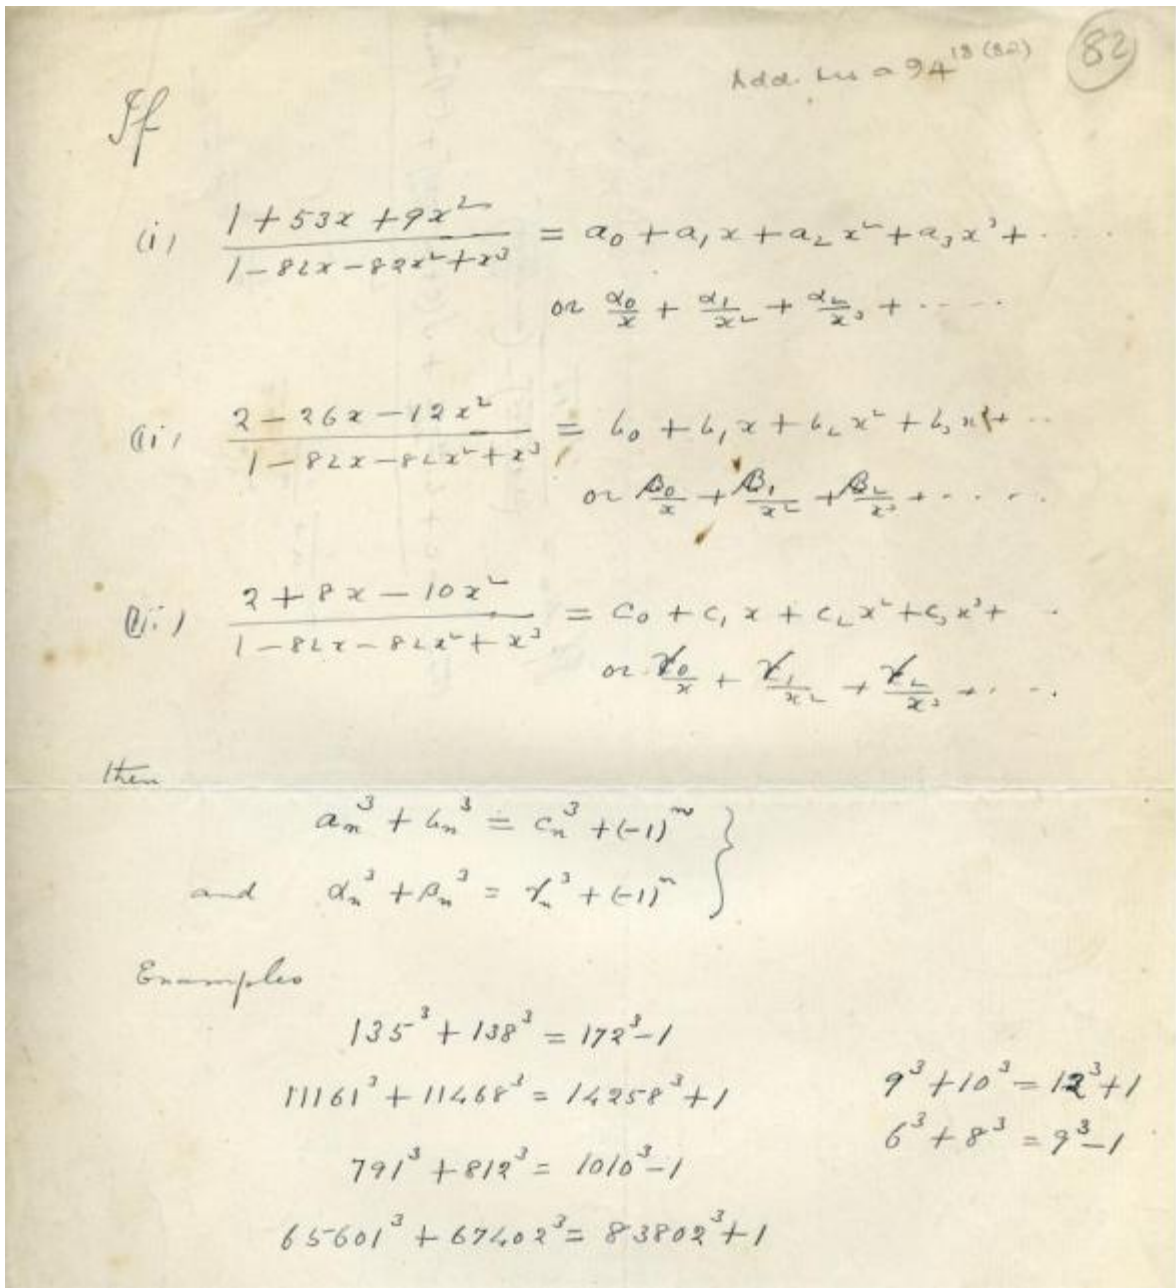 Add. Ms a 94^18 (82) 82
If
(i) (1 + 53x + 9x²)/(1 - 82x - 82x² + x³) = a₀ + a₁x + a₂x² + a₃x³ + ....
or α₀/x + α₁/x² + α₂/x³ + .....
(ii) (2 - 26x - 12x²)/(1 - 82x - 82x² + x³) = b₀ + b₁x + b₂x² + b₃x³ + ..
or β₀/x + β₁/x² + β₂/x³ + .....
(iii) (2 + 8x - 10x²)/(1 - 82x - 82x² + x³) = c₀ + c₁x + c₂x² + c₃x³ + .
or γ₀/x + γ₁/x² + γ₂/x³ + ....
then
aₙ³ + bₙ³ = cₙ³ + (-1)ⁿ }
and αₙ³ + βₙ³ = γₙ³ + (-1)ⁿ
Examples
135³ + 138³ = 172³ - 1
11161³ + 11468³ = 14258³ + 1 9³ + 10³ = 12³ + 1
791³ + 812³ = 1010³ - 1 6³ + 8³ = 9³ - 1
65601³ + 67402³ = 83802³ + 1